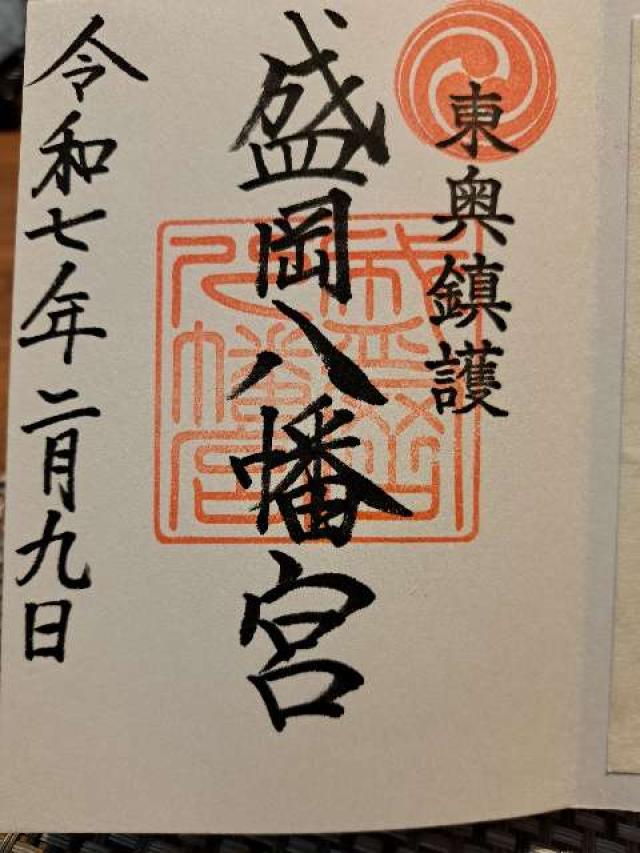 東奥鎮護
盛岡八幡宮
令和七年二月九日
盛岡八幡宮